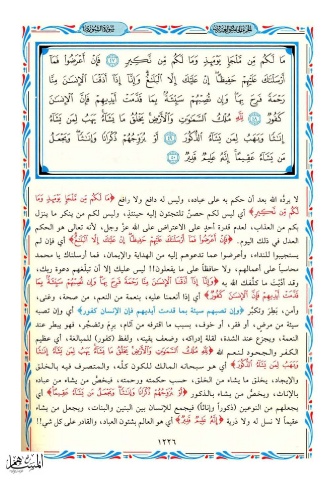 سُورَةُ الشُّورَىٰ
مَا لَكُم مِّن مَّلْجَإٍ يَوْمَئِذٍ وَمَا لَكُم مِّن نَّكِيرٍ ﴿٤٧﴾ فَإِنْ أَعْرَضُوا فَمَا
أَرْسَلْنَاكَ عَلَيْهِمْ حَفِيظًا إِنْ عَلَيْكَ إِلَّا الْبَلَاغُ وَإِنَّا إِذَا أَذَقْنَا الْإِنسَانَ مِنَّا
رَحْمَةً فَرِحَ بِهَا وَإِن تُصِبْهُمْ سَيِّئَةٌ بِمَا قَدَّمَتْ أَيْدِيهِمْ فَإِنَّ الْإِنسَانَ
كَفُورٌ ﴿٤٨﴾ لِلَّهِ مُلْكُ السَّمَاوَاتِ وَالْأَرْضِ يَخْلُقُ مَا يَشَاءُ يَهَبُ لِمَن يَشَاءُ
إِنَاثًا وَيَهَبُ لِمَن يَشَاءُ الذُّكُورَ ﴿٤٩﴾ أَوْ يُزَوِّجُهُمْ ذُكْرَانًا وَإِنَاثًا وَيَجْعَلُ
مَن يَشَاءُ عَقِيمًا إِنَّهُ عَلِيمٌ قَدِيرٌ ﴿٥٠﴾
لا يردُّه الله بعد أن حكم به على عباده، وليس له دافع ولا رافع ﴿مَا لَكُم مِّن مَّلْجَإٍ يَوْمَئِذٍ وَمَا
لَكُم مِّن نَّكِيرٍ﴾ أي ليس لكم حصنٌ تلتجئون إليه حينئذٍ، وليس لكم من ينكر ما ينزل
بكم من العذاب، لعدم قدرة أحدٍ على الاعتراض على الله عزَّ وجل، لأنه تعالى هو الحكم
العدل في ذلك اليوم.. ﴿فَإِنْ أَعْرَضُوا فَمَا أَرْسَلْنَاكَ عَلَيْهِمْ حَفِيظًا إِنْ عَلَيْكَ إِلَّا الْبَلَاغُ﴾ أي فإن لم
يستجيبوا للنداء، وأعرضوا عما تدعوهم إليه من الهداية والإيمان، فما أرسلناك يا محمد
محاسباً على أعمالهم، ولا حافظاً على ما يفعلون!! ليس عليك إلا أن تبلِّغهم دعوة ربك،
وقد أدَّيت ما كلَّفك الله به ﴿وَإِنَّا إِذَا أَذَقْنَا الْإِنسَانَ مِنَّا رَحْمَةً فَرِحَ بِهَا وَإِن تُصِبْهُمْ سَيِّئَةٌ بِمَا
قَدَّمَتْ أَيْدِيهِمْ فَإِنَّ الْإِنسَانَ كَفُورٌ﴾ أي إذا أنعمنا عليه، بنعمة من النعم، من صحة، وغنى،
وأمن، بَطِرَ وتكبَّر ﴿وإن تصبهم سيئة بما قدمت أيديهم فإن الإنسان كفور﴾ أي وإن تصبه
سيئة من مرضٍ، أو فقر، أو خوف، بسبب ما اقترفه من آثام، يرمْ وتضجَّر، فهو يبطر عند
النعمة، ويجزع عند الشدة، لقلة إدراكه، وضعف يقينه، ولفظ (كفور) للمبالغة، أي عظيم
الكفر والجحود لنعم الله ﴿لِلَّهِ مُلْكُ السَّمَاوَاتِ وَالْأَرْضِ يَخْلُقُ مَا يَشَاءُ يَهَبُ لِمَن يَشَاءُ إِنَاثًا
وَيَهَبُ لِمَن يَشَاءُ الذُّكُورَ﴾ أي هو سبحانه المالك للكون كلِّه، والمتصرف فيه بالخلق
والإيجاد، يخلق ما يشاء من الخلق، حسب حكمته ورحمته، فيخصُّ من يشاء من عباده
بالإناث، ويخصُّ من يشاء بالذكور ﴿أَوْ يُزَوِّجُهُمْ ذُكْرَانًا وَإِنَاثًا وَيَجْعَلُ مَن يَشَاءُ عَقِيمًا﴾ أي
يجعلهم من النوعين (ذكوراً وإناثاً) فيجمع للإنسان بين البنين والبنات، ويجعل من يشاء
عقيماً لا نسل له ولا ذرية ﴿إِنَّهُ عَلِيمٌ قَدِيرٌ﴾ أي هو العالم بشئون العباد، والقادر على كل شيء!!
١٢٢٦